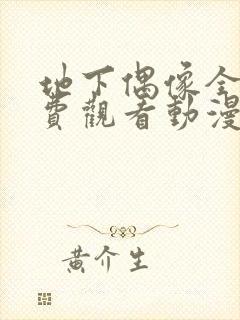 地下偶像全
費觀看動漫
黃介生